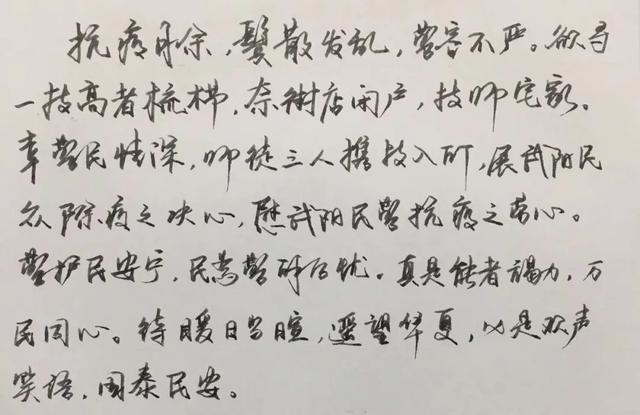 抗疫月余，鬓散发乱，警容不严。欲寻
一技高者梳栉，奈街店闭户，技师宅家。
幸警民情深，师徒三人携技入所，展武阳民
众除疫之决心，慰武阳民警抗疫之苦心。
警护民安宁，民为警解后忧。真是能者竭力，万
民同心。待暖日当暄，遥望华夏，必是欢声
笑语，国泰民安。